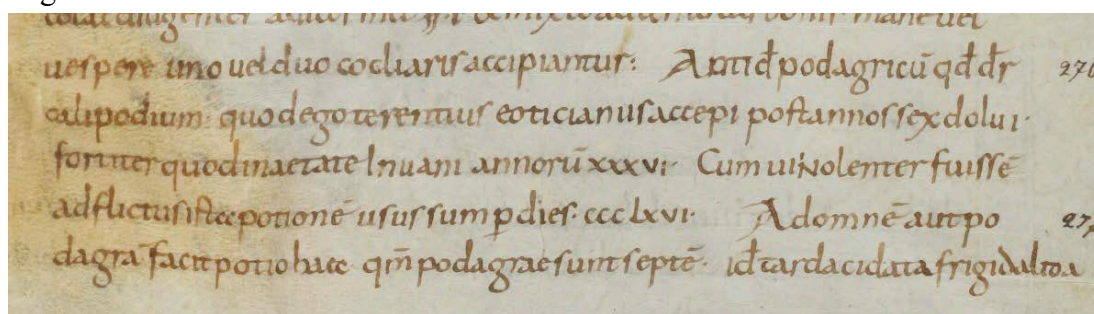 uespere uno uel duo cocliaris accipiantur: Antid podagricū qd dr 276
calipodium· quod ego terentius eoticianus accepi post annos sex dolui·
fortiter quod in aetate Inuani annorū xxxvi· Cum uiNolenter fuissē
adflictus istec potionē usus sum p dies· ccc lxvi· Ad omnē aut po
dagrā facit potio haec qm̄ podagrae sunt septē· id tarda cidata frigida